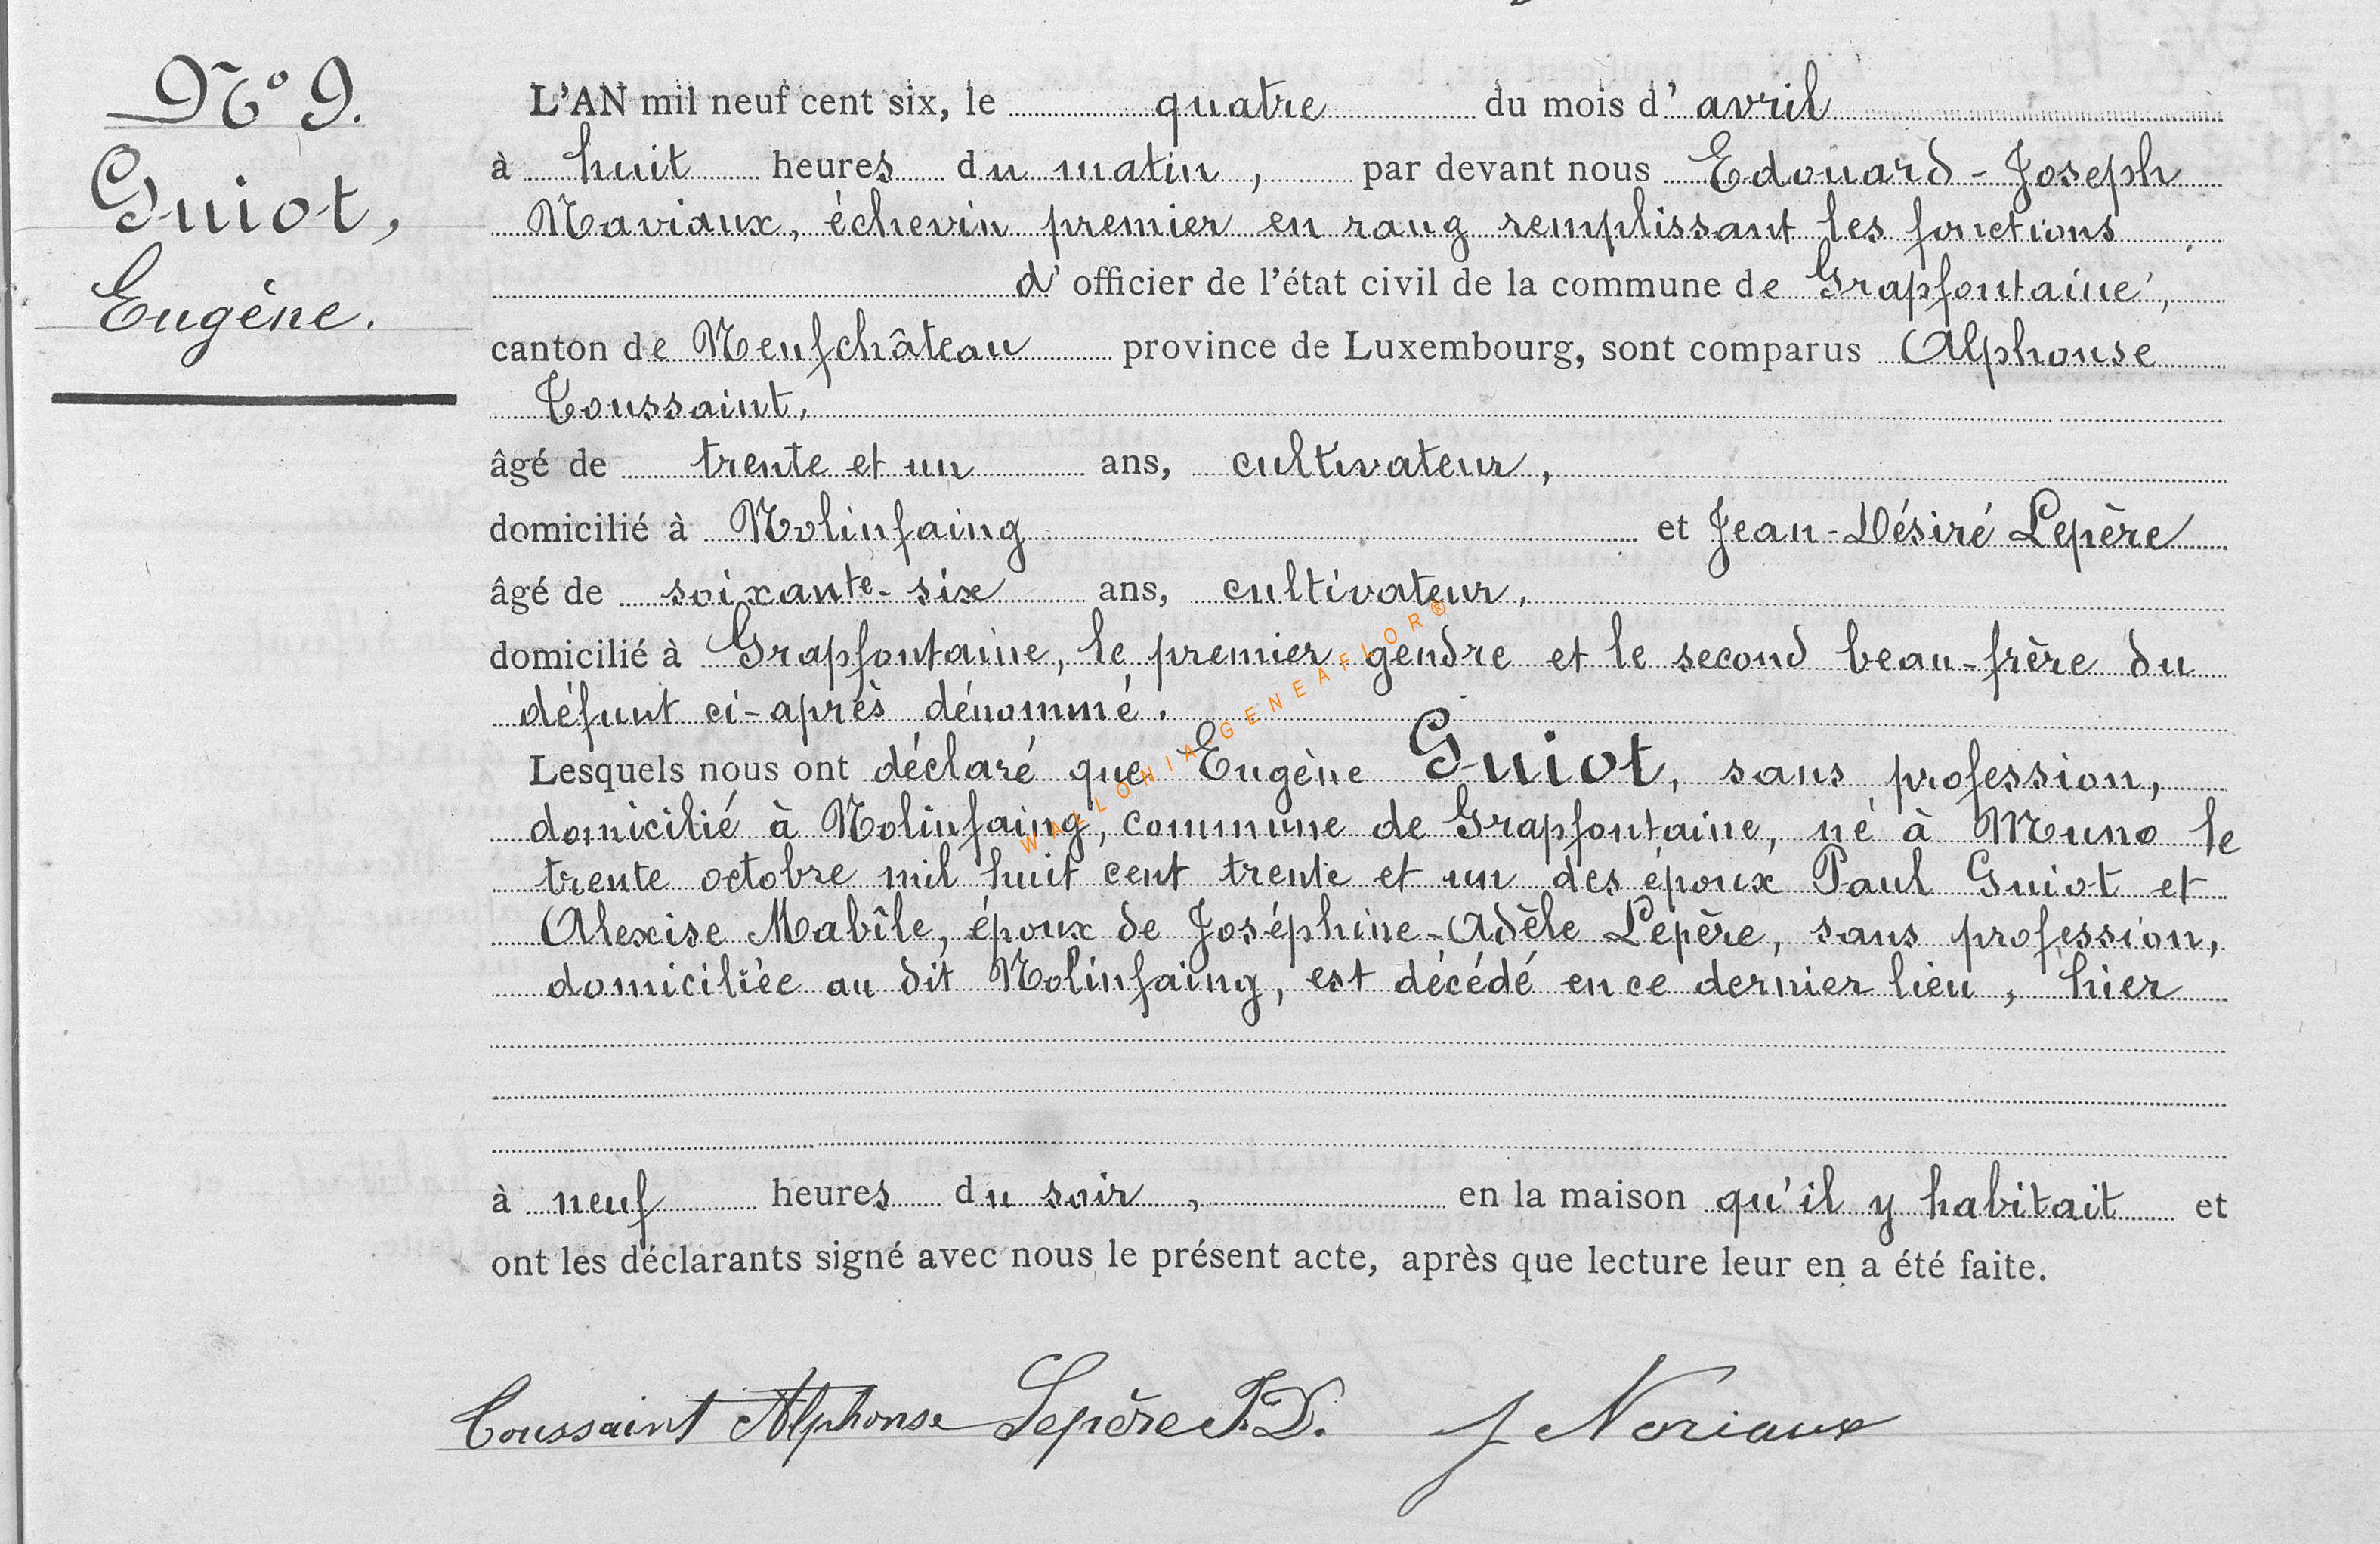 N° 9.
Guiot,
Eugène.
L'AN mil neuf cent six, le quatre du mois d'avril
à huit heures du matin, par devant nous Edouard-Joseph
Naviaux, échevin premier en rang remplissant les fonctions
d'officier de l'état civil de la commune de Grapfontaine,
canton de Neufchâteau province de Luxembourg, sont comparus Alphonse
Toussaint,
âgé de trente et un ans, cultivateur,
domicilié à Nolinfaing et Jean-Désiré Lepère
âgé de soixante-six ans, cultivateur,
domicilié à Grapfontaine, le premier gendre et le second beau-frère du
défunt ci-après dénommé.
Lesquels nous ont déclaré que Eugène Guiot, sans profession,
domicilié à Nolinfaing, commune de Grapfontaine, né à Muno le
trente octobre mil huit cent trente et un des époux Paul Guiot et
Alexise Mabîle, époux de Joséphine-Adèle Lepère, sans profession,
domiciliée au dit Nolinfaing, est décédé en ce dernier lieu, hier
à neuf heures du soir, en la maison qu'il y habitait et
ont les déclarants signé avec nous le présent acte, après que lecture leur en a été faite.
Toussaint Alphonse Lepère J.D. J Naviaux
WALLONIA GENEAFLOR®